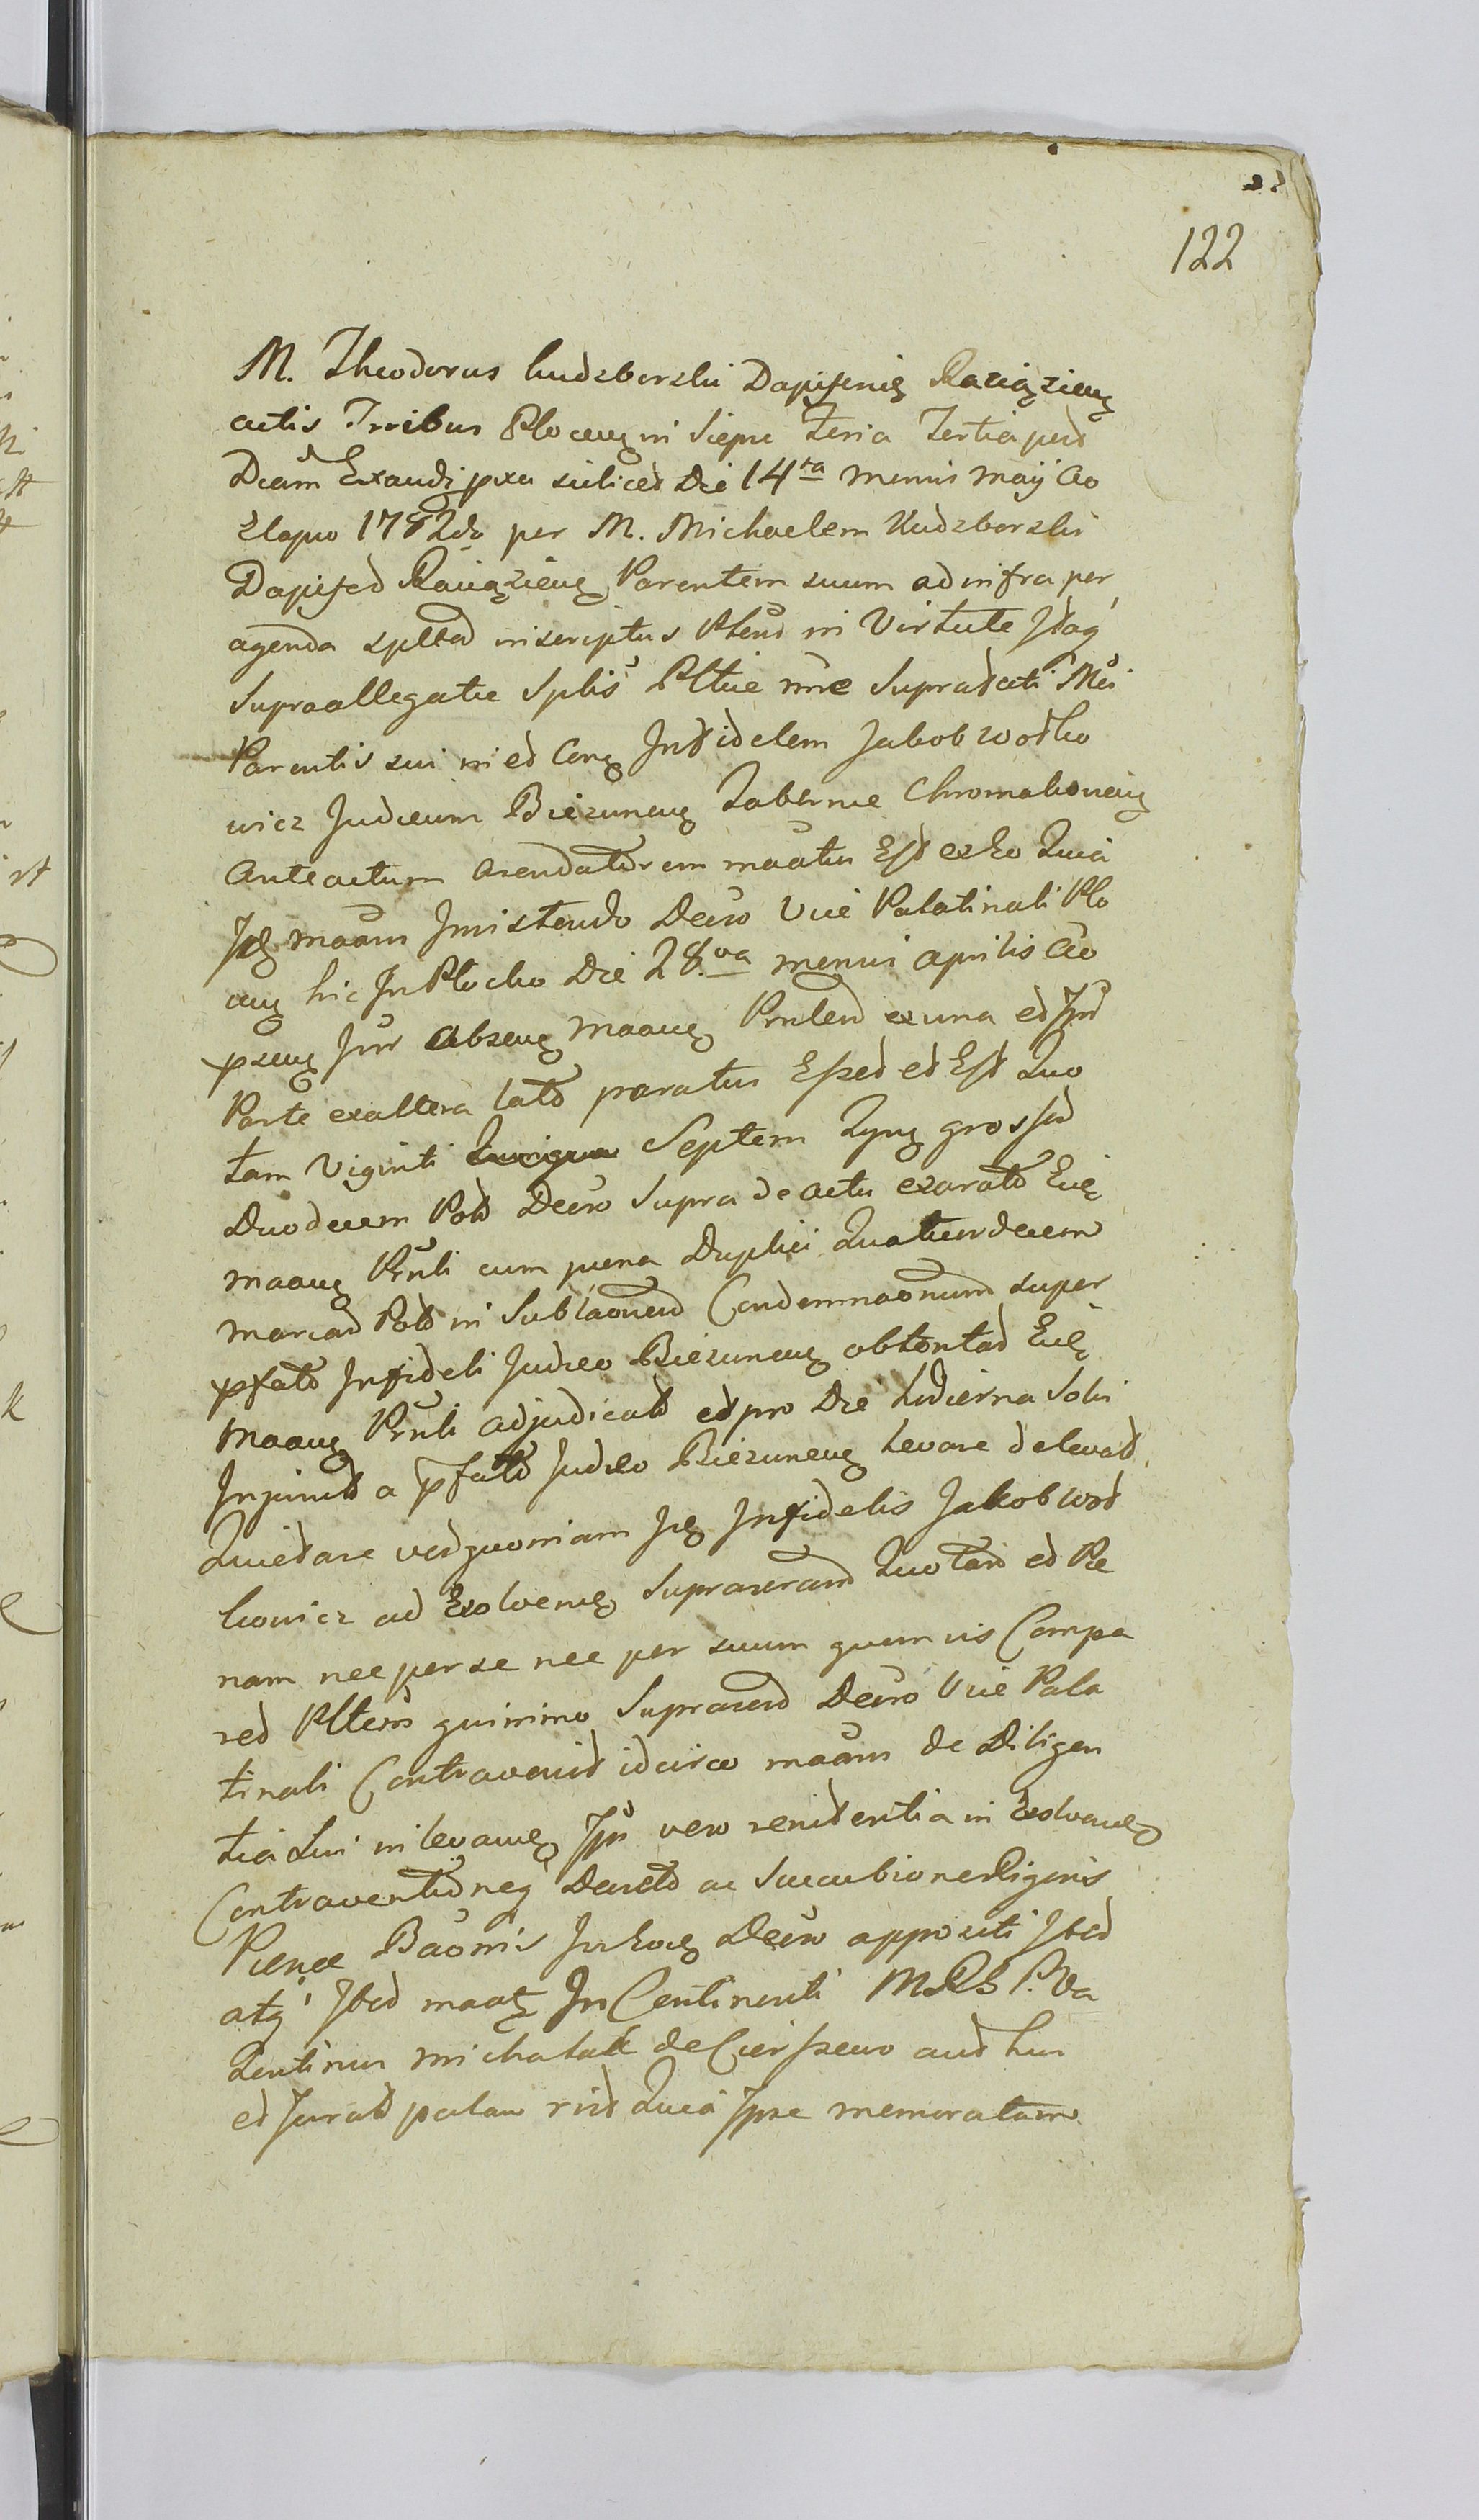 122
M. Theodorus Kudzborski Dapiferid Raciązieng
actis Trribus Plocen in Siepc Feria Tertia post
Dcam Exaudi pxa scilicet Die 14ta mensis Maÿ Ao
Elapso 1782do per M. Michaelem Kudzborski
Dapifed Raciązien Parentem suum ad infra per
agenda spltad inscriptus Plend in Virtute Jdag
Supraallegatæ Splis Pltiæ nne Supradicti Mci
Parentis sui in et Con Infidelem Jakob Wodko
wicz Judæum Biezunen Tabernæ Chromakoven
Anteactum Arendatorem maatus Est ex Eo Quia
Jdq maans Jnsistendo Decro Vice Palatinali Plo
cen hic Jn Plocko Die 28va mensis Aprilis Ao
pxen Jnr Absen maan Prnlend ex una et Jnd
Parte ex altera lato paratus Esset et Est Quo
tam Viginti Septem Tyn grossos
Duodecem Pol Decro Supra de actu exarato Eid
maan Prnli cum pæna Duplici Quatuordecem
marcas Pol in Sublaonem Condemnaonum super
pfato Jnfideli Judæo Biezunen obtentas Eid
maan Prnli adjudicat et pro Die hodierna Solvi
Jnjunct a Pfato Judæo Biezunen Levare delevat
Quietare ved quoniam Jdq Jnfidelis Jakob Wod
kowicz ad Exolven Suprascram Quotam et Pæ
nam nec per se nec per suum quemvis Compa
red Pltem quinimo Suprascro Decro Vice Pala
tinali Contravenit idcirco maans de Diligen
tia Sui in levan Jpi vero renitentia in Exolven
Contraventione Decreto ac Succubione Rigoris
Pænæ Baonis Jn Eod Decro appositi Jted
atq Jted maat Jn Continenti MRS P. Va
lentinus Michalak de Cierszewo aud hu
et Jurat palam rect Quia Jpse memoratam